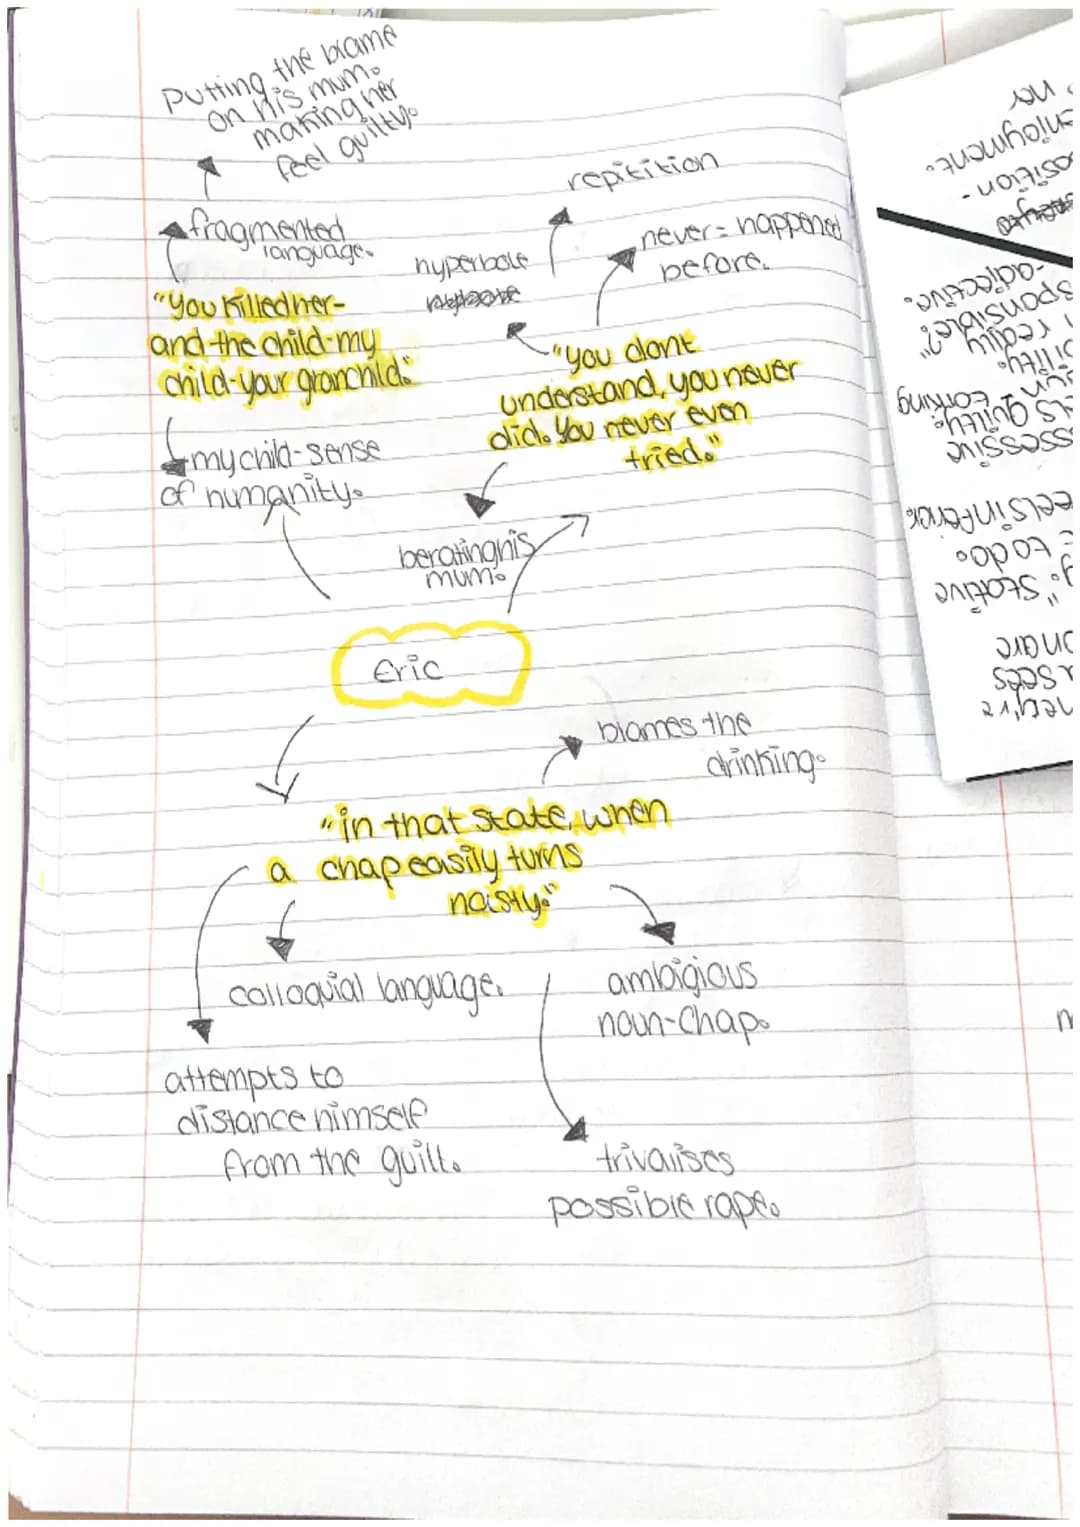 Putting the blame
on his mum.
making her
feel guilty.
fragmented
language.
"You killed her-
and the child-my
child-your granchild."
my child-sense
of humanity.
repitition
never = happened
before.
hyperbole
"you dont
understand, you never
did. You never even
tried."
berating his
mum.
Eric
blames the
drinking.
"in that state, when
a chap easily turns
naisty."
colloquial language.
ambigious
noun-Chap.
attempts to
distance himself
from the guilt.
trivalises
possible rape.
her
enjoyment.
adjective.
"
really
guilty
feels inferior.
to do.
stative
sees